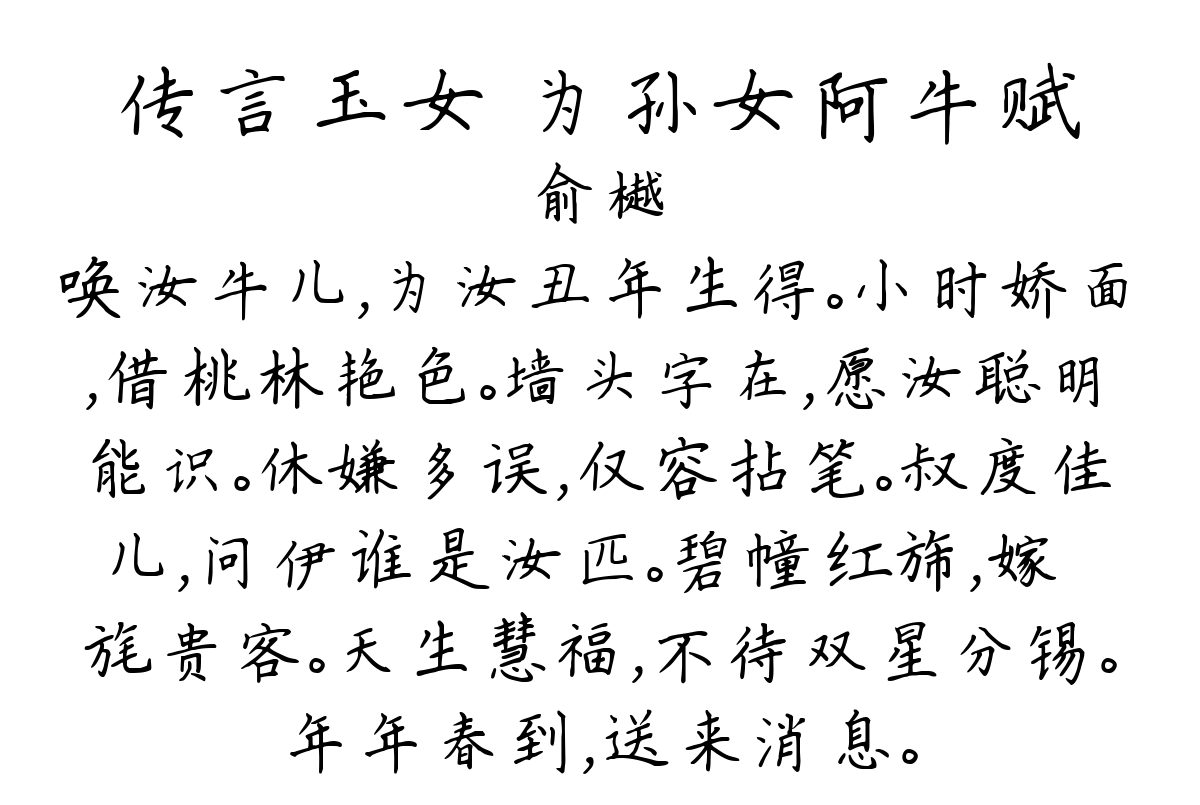 传言玉女 为孙女阿牛赋
俞樾
唤汝牛儿,为汝丑年生得。小时娇面
,借桃林艳色。墙头字在,愿汝聪明
能识。休嫌多误,仅容拈笔。叔度佳
儿,问伊谁是汝匹。碧幢红旆,嫁
旄贵客。天生慧福,不待双星分锡。
年年春到,送来消息。